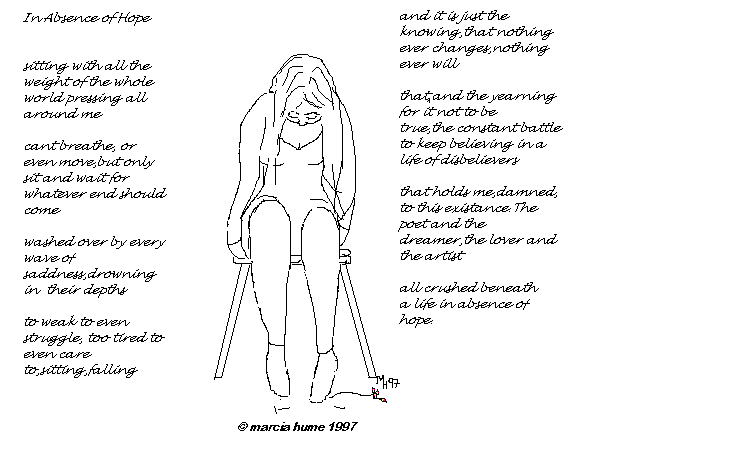 In Absence of Hope
sitting with all the
weight of the whole
world pressing all
around me
cant breathe, or
even move,but only
sit and wait for
whatever end should
come
washed over by every
wave of
saddness,drowning
in their depths
to weak to even
struggle, too tired to
even care
to,sitting,falling
and it is just the
knowing,that nothing
ever changes,nothing
ever will
that,and the yearning
for it not to be
true,the constant battle
to keep believing in a
life of disbelievers
that holds me,damned,
to this existance.The
poet and the
dreamer,the lover and
the artist
all crushed beneath
a life in absence of
hope.
MH97
© marcia hume 1997